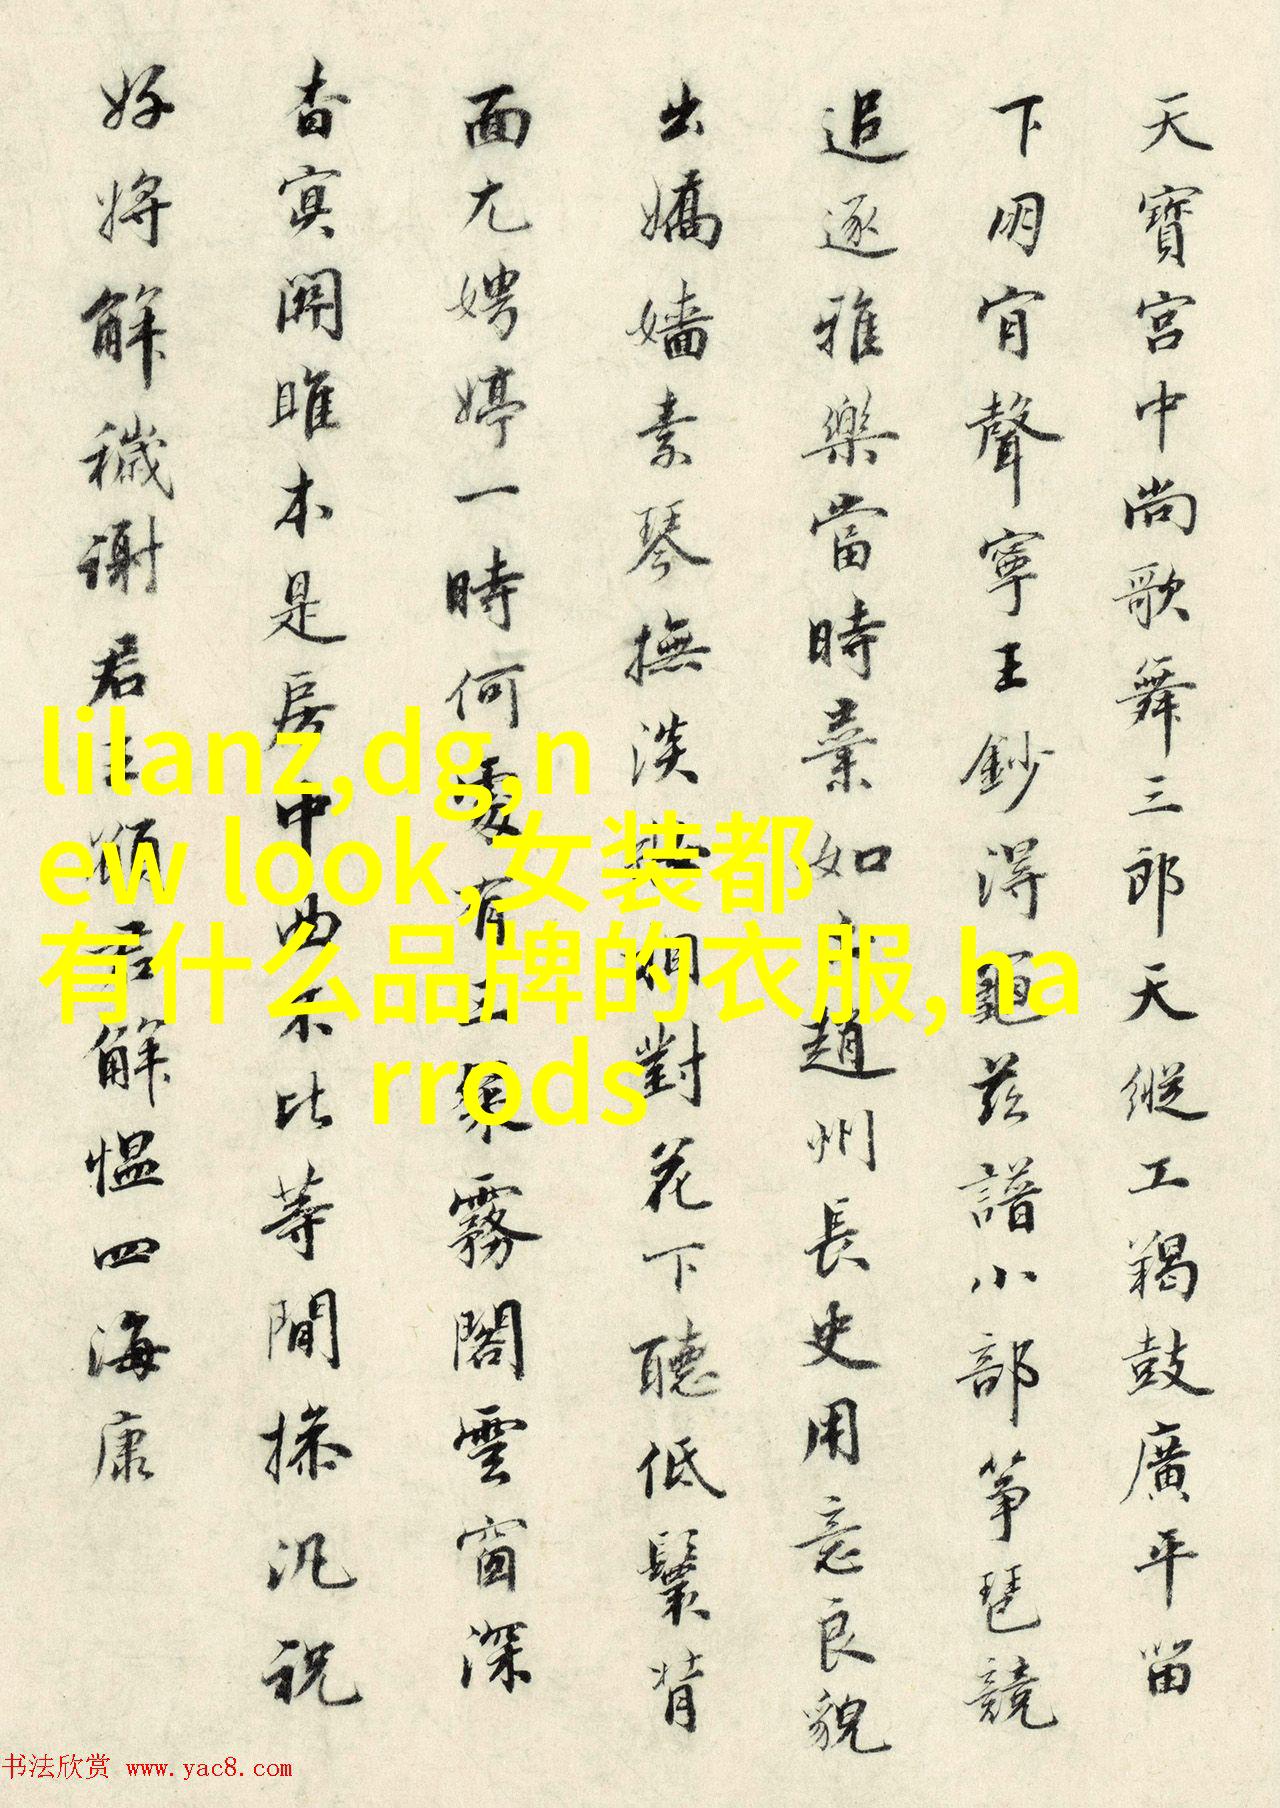 天寶宮中尚歌舞三郎天縱工羯鼓廣平笛
下明宵聲寧王鈔得龜茲譜小部箏琵競
追逐雅樂當時棄如趙州長史用意良貌
出嬌嬙素琴撫淡對花下聽低鬟背
面尤娉婷一時何處有霧閣雲窗深
杳冥關雎本是房中曲不比等閒操汎祝
好將解穢謝君解慍四海康
lilanz,dg,n
ew look,女装都
有什么品牌的衣服,ha
rrods
书法欣赏 www.yac8.com